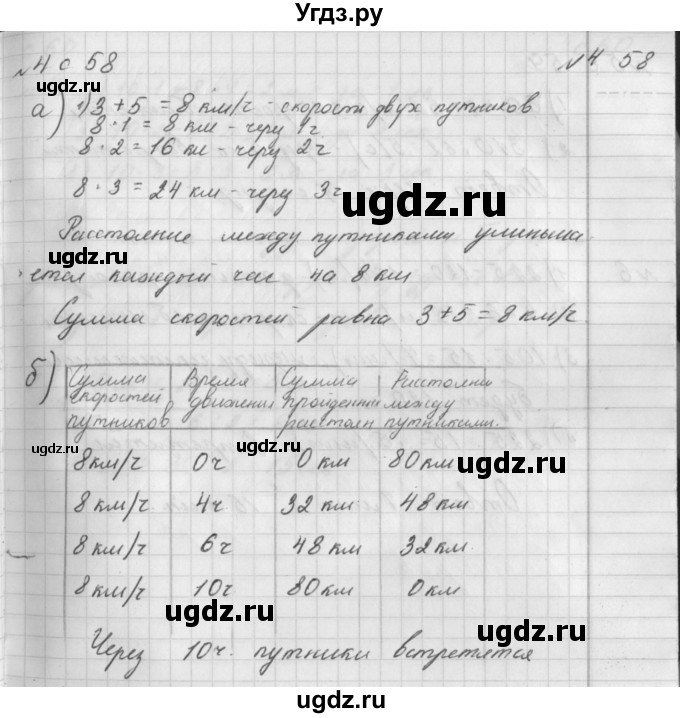 Угдз.ру
№4 с 58
№4 58
ugdz.ru
а) 1) 3 + 5 = 8 км/ч - скорости двух путников
8 · 1 = 8 км - через 1ч
8 · 2 = 16 км - через 2ч
8 · 3 = 24 км - через 3ч
ugdz.ru
Расстояние между путниками уменьша
ется каждый час на 8 км
ugdz.ru
Сумма скоростей равна 3+5 = 8 км/ч.
б)
Сумма скоростей путников | Время движения | Сумма пройденных расстоян | Расстояние между путниками.
ugdz.ru
8 км/ч 0ч 0 км 80 км
ugdz.ru
8 км/ч 4ч 32 км 48 км
8 км/ч 6ч 48 км 32 км
8 км/ч 10ч 80 км 0 км
ugdz.ru
ugdz.ru
Через 10ч. путники встретятся
ugdz.ru